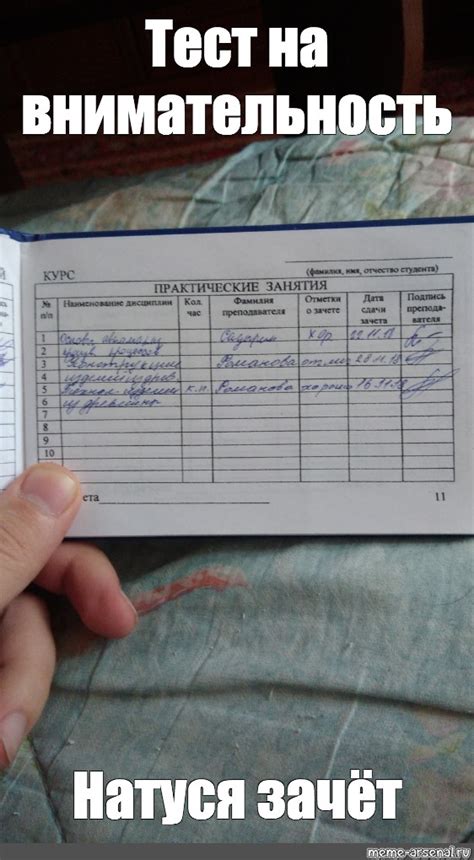 Тест на
внимательность
Й КУРС
(фамилия, имя, отчество студента)
ПРАКТИЧЕСКИЕ ЗАНЯТИЯ
№ п/п Наименование дисциплин Кол. час Фамилия преподавателя Отметки о зачете Дата сдачи зачета Подпись препода-вателя
1 Основы хор 22.11.18
2
3 Романова отл
4 изделий
5 к.п. Романова хорошо 16.11.18
6 из древесины
7
8
9
10
ета 11
Натуся зачёт
meme-arsenal.ru